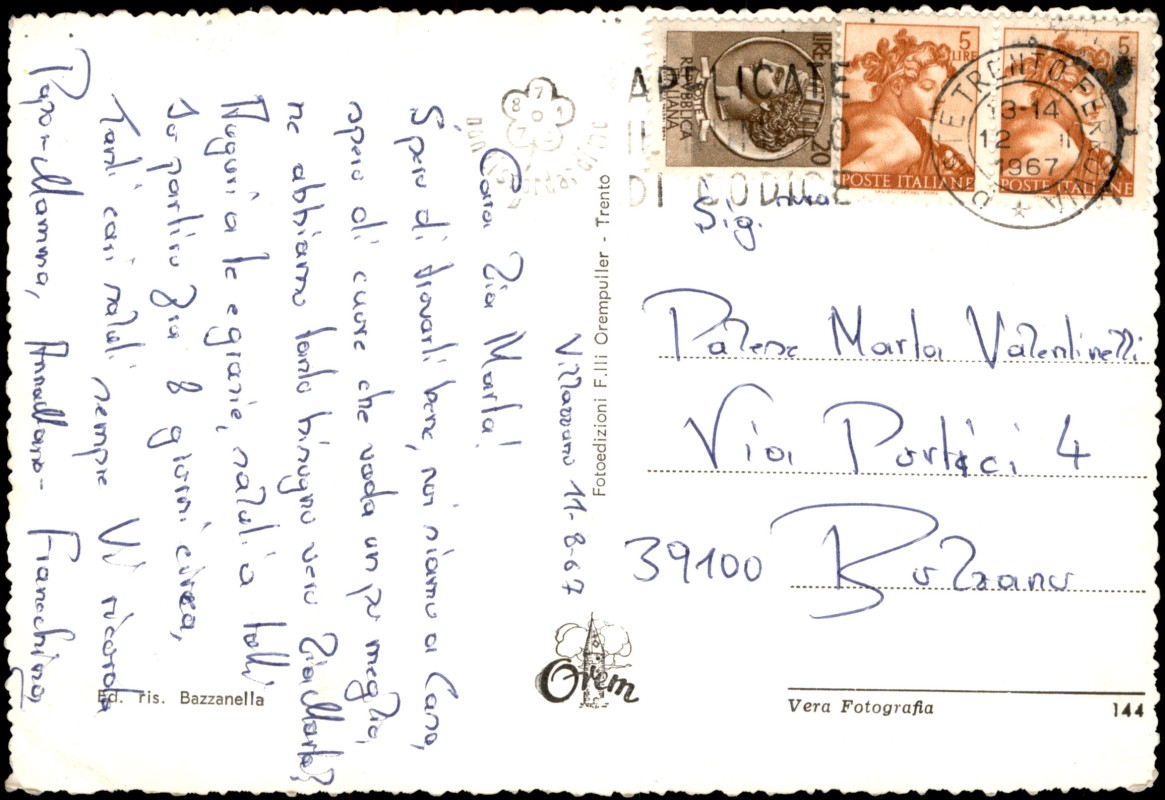 Villazzano 11-8-67
Cara Zia Marta!
Spero di trovarti bene, noi siamo a Casa,
spero di cuore che vada un po meglio,
ne abbiamo tanto bisogno vero Zia Marta?
Auguri a te e grazie, saluti a tutti
Io partirò fra 8 giorni circa,
Tanti cari saluti sempre Vi ricorda
Papà - Mamma, - Franschina
Ed. ris. Bazzanella
Fotoedizioni F.lli Orempuller - Trento
Orem
REPUBBLICA ITALIANA
LIRE 20
5 LIRE
POSTE ITALIANE
5
POSTE ITALIANE
TRENTO FERROVIA
13-14
12
1967
DI CODICE
Sig.
Marta Valentinelli
Via Portici 4
39100 Bolzano
Vera Fotografia
144